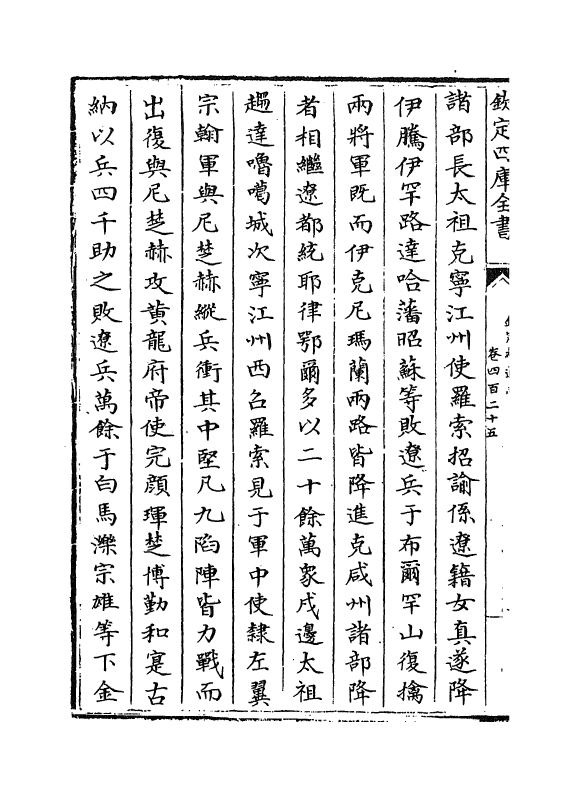 欽定四庫全書
卷四百二十五
諸部長太祖克寧江州使羅索招諭係遼籍女真遂降
伊騰伊罕路達哈藩昭蘇等敗遼兵于布爾罕山復擒
兩將軍既而伊克尼瑪蘭兩路皆降進克咸州諸部降
者相繼遼都統耶律鄂爾多以二十餘萬衆戍邊太祖
趨達嚕噶城次寧江州西召羅索見于軍中使隸左翼
宗翰軍與尼楚赫縱兵衝其中堅凡九陷陣皆力戰而
出復與尼楚赫攻黄龍府帝使完顔琿楚博勤和寔古
納以兵四千助之敗遼兵萬餘于白馬濼宗雄等下金